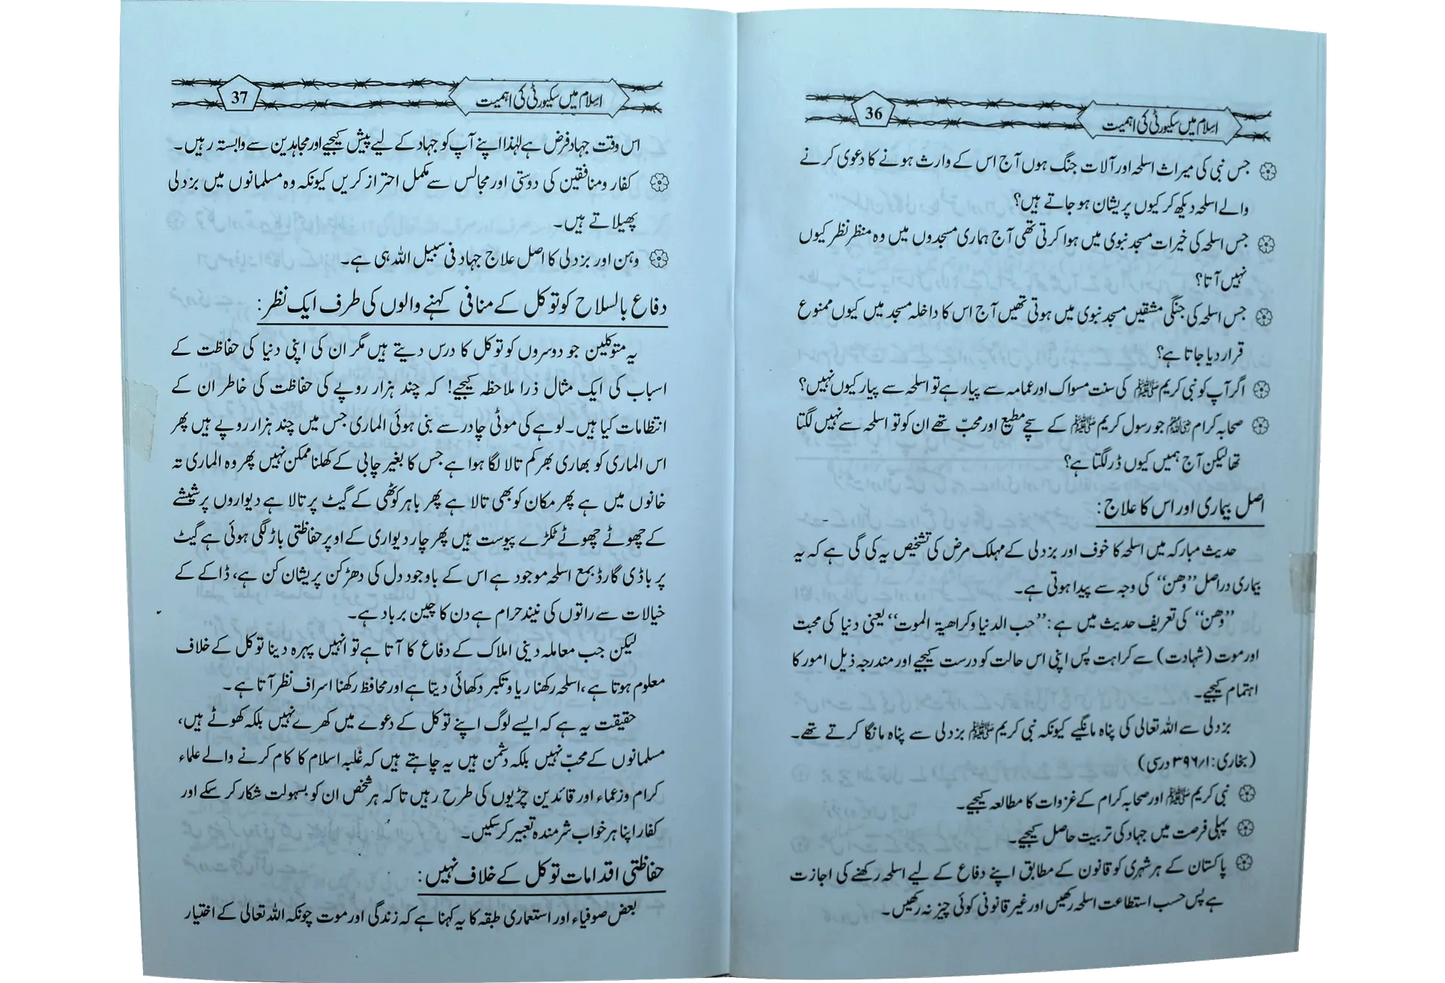 اسلام میں سکیورٹی کی اہمیت
36
جس نبی کی میراث اسلحہ اور آلات جنگ ہوں آج اس کے وارث ہونے کا دعوی کرنے
والے اسلحہ دیکھ کر کیوں پریشان ہو جاتے ہیں؟
جس اسلحہ کی خیرات مسجد نبوی میں ہوا کرتی تھی آج ہماری مسجدوں میں وہ منظر نظر کیوں
نہیں آتا؟
جس اسلحہ کی جنگی مشقیں مسجد نبوی میں ہوتی تھیں آج اس کا داخلہ مسجد میں کیوں ممنوع
قرار دیا جاتا ہے؟
اگر آپ کو نبی کریم ﷺ کی سنت مسواک اور عمامہ سے پیار ہے تو اسلحہ سے پیار کیوں نہیں؟
صحابہ کرام جو رسول کریم ﷺ کے سچے مطیع اور محبّ تھے ان کو تو اسلحہ سے نہیں لگتا
تھا لیکن آج ہمیں کیوں ڈر لگتا ہے؟
اصل بیماری اور اس کا علاج:
حدیث مبارکہ میں اسلحہ کا خوف اور بزدلی کے مہلک مرض کی تشخیص یہ کی گی ہے کہ یہ
بیماری دراصل ’’وھن‘‘ کی وجہ سے پیدا ہوتی ہے۔
’’وھن‘‘ کی تعریف حدیث میں ہے: ’’حب الدنیا وکراھیۃ الموت‘‘ یعنی دنیا کی محبت
اور موت (شہادت) سے کراہت پس اپنی اس حالت کو درست کیجیے اور مندرجہ ذیل امور کا
اہتمام کیجیے۔
بزدلی سے اللہ تعالی کی پناہ مانگیے کیونکہ نبی کریم ﷺ بزدلی سے پناہ مانگا کرتے تھے۔
(بخاری: ۱/۳۹۶ درسی)
نبی کریم ﷺ اور صحابہ کرام کے غزوات کا مطالعہ کیجیے۔
پہلی فرصت میں جہاد کی تربیت حاصل کیجیے۔
پاکستان کے ہر شہری کو قانون کے مطابق اپنے دفاع کے لیے اسلحہ رکھنے کی اجازت
ہے پس حسب استطاعت اسلحہ رکھیں اور غیر قانونی کوئی چیز نہ رکھیں۔
اسلام میں سکیورٹی کی اہمیت
37
اس وقت جہاد فرض ہے لہٰذا اپنے آپ کو جہاد کے لیے پیش کیجیے اور مجاہدین سے وابستہ رہیں۔
کفار و منافقین کی دوستی اور مجالس سے مکمل احتراز کریں کیونکہ وہ مسلمانوں میں بزدلی
پھیلاتے ہیں۔
وہن اور بزدلی کا اصل علاج جہاد فی سبیل اللہ ہی ہے۔
دفاع بالسلاح کو توکل کے منافی کہنے والوں کی طرف ایک نظر:
یہ متوکلین جو دوسروں کو توکل کا درس دیتے ہیں مگر ان کی اپنی دنیا کی حفاظت کے
اسباب کی ایک مثال ذرا ملاحظہ کیجیے! کہ چند ہزار روپے کی حفاظت کی خاطر ان کے
انتظامات کیا ہیں۔ لوہے کی موٹی چادر سے بنی ہوئی الماری جس میں چند ہزار روپے ہیں پھر
اس الماری کو بھاری بھر کم تالا لگا ہوا ہے جس کا بغیر چابی کے کھلنا ممکن نہیں پھر وہ الماری تہ
خانوں میں ہے پھر مکان کو بھی تالا ہے پھر باہر کوٹھی کے گیٹ پر تالا ہے دیواروں پر شیشے
کے چھوٹے چھوٹے ٹکڑے پیوست ہیں پھر چار دیواری کے اوپر حفاظتی باڑ لگی ہوئی ہے گیٹ
پر باڈی گارڈ بمع اسلحہ موجود ہے اس کے باوجود دل کی دھڑکن پریشان کن ہے، ڈاکے کے
خیالات سے راتوں کی نیند حرام ہے دن کا چین برباد ہے۔
لیکن جب معاملہ دینی املاک کے دفاع کا آتا ہے تو انہیں پہرہ دینا توکل کے خلاف
معلوم ہوتا ہے، اسلحہ رکھنا ریا و تکبر دکھائی دیتا ہے اور محافظ رکھنا اسراف نظر آتا ہے۔
حقیقت یہ ہے کہ ایسے لوگ اپنے توکل کے دعوے میں کھرے نہیں بلکہ کھوٹے ہیں،
مسلمانوں کے محبّ نہیں بلکہ دشمن ہیں یہ چاہتے ہیں کہ غلبہ اسلام کا کام کرنے والے علماء
کرام و زعماء اور قائدین چڑیوں کی طرح رہیں تاکہ ہر شخص ان کو بسہولت شکار کر سکے اور
کفار اپنا ہر خواب شرمندہ تعبیر کر سکیں۔
حفاظتی اقدامات توکل کے خلاف نہیں:
بعض صوفیاء اور استعماری طبقہ کا یہ کہنا ہے کہ زندگی اور موت چونکہ اللہ تعالی کے اختیار